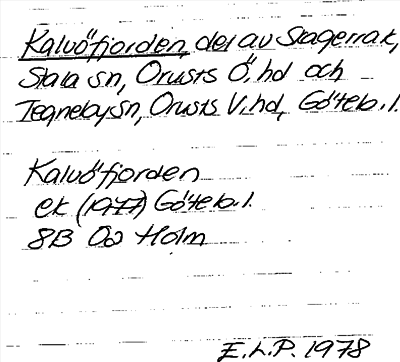 Kalvöfjorden, del av Skagerrak,
Stala sn, Orusts Ö. hd och
Tegneby sn, Orusts V. hd, Göteb. l.
Kalvöfjorden
ek (1977) Göteb. l.
8B 0a Holm
E.L.P. 1978